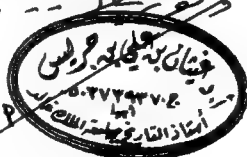 غيثان بن علي بن جريس
ج. ٥٠٣٧٣٩٣٧٠
أبها
أستاذ التاريخ بجامعة الملك خالد